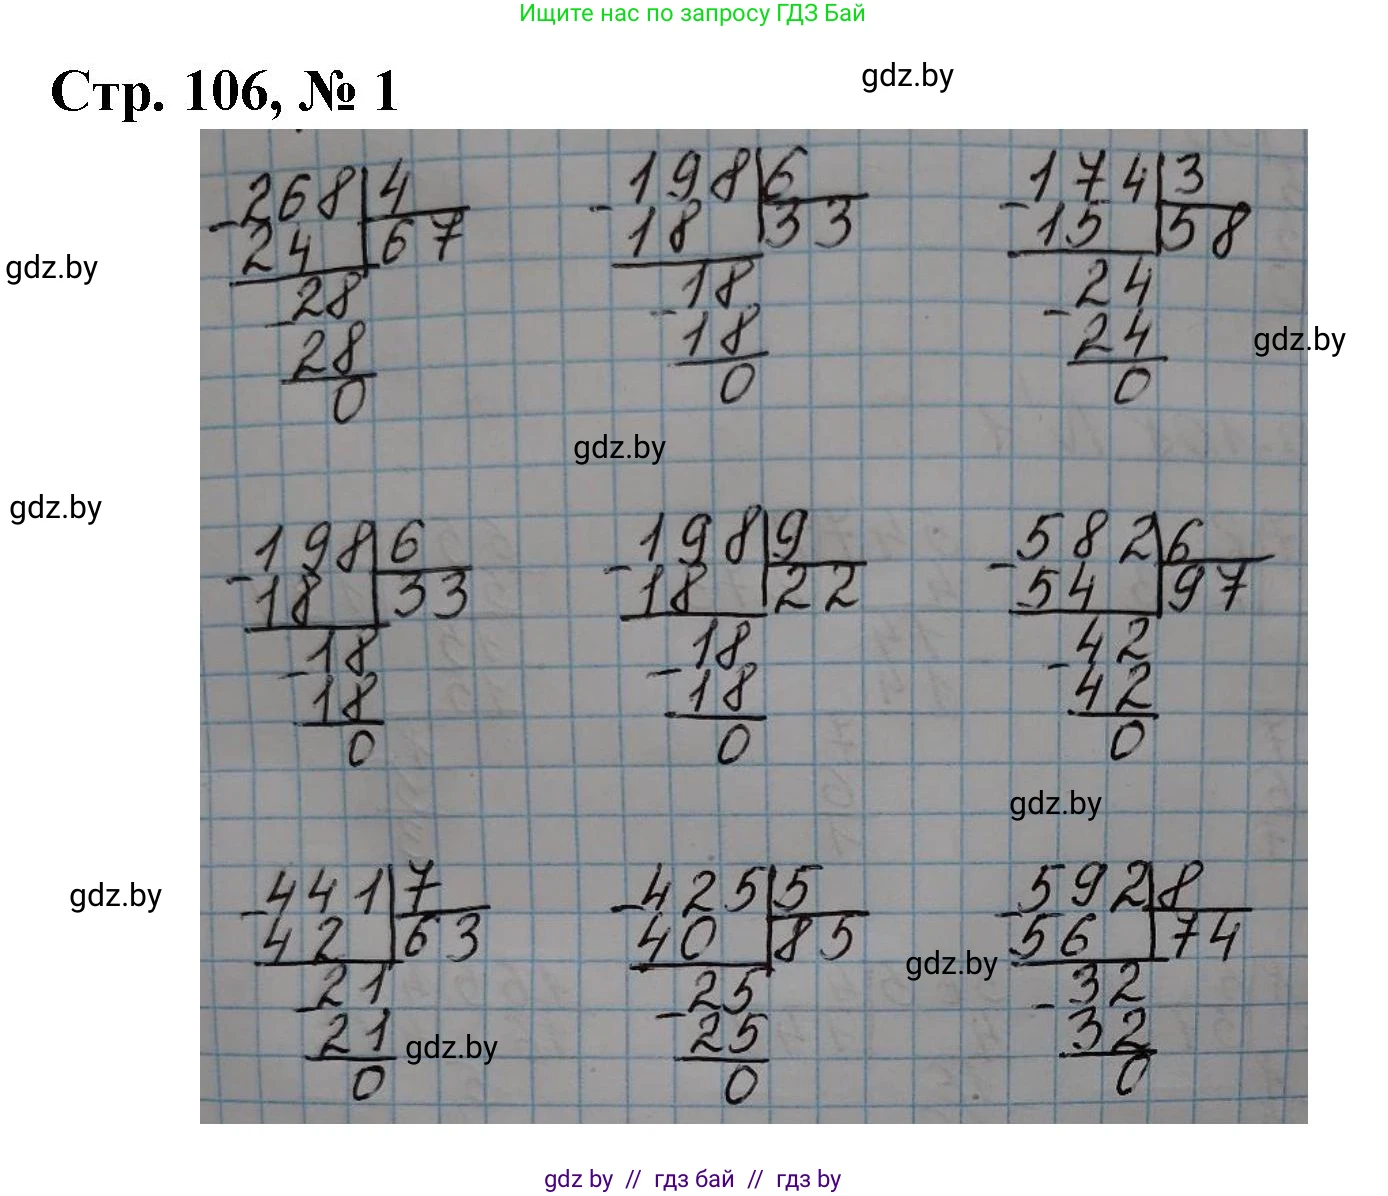 Ищите нас по запросу ГДЗ Бай
Стр. 106, № 1
gdz.by
268 4 198 6 174 3
- 24 67 - 18 33 - 15 58
gdz.by
28 18 24
- 28 - 18 - 24
gdz.by
0 0 0
gdz.by
gdz.by
198 6 198 9 582 6
- 18 33 - 18 22 - 54 97
18 18 42
- 18 - 18 - 42
0 0 0
gdz.by
gdz.by
441 7 425 5 592 8
- 42 63 - 40 85 - 56 74
gdz.by
21 25 32
- 21 - 25 - 32
gdz.by
0 0 0
gdz by // гдз бай // гдз by